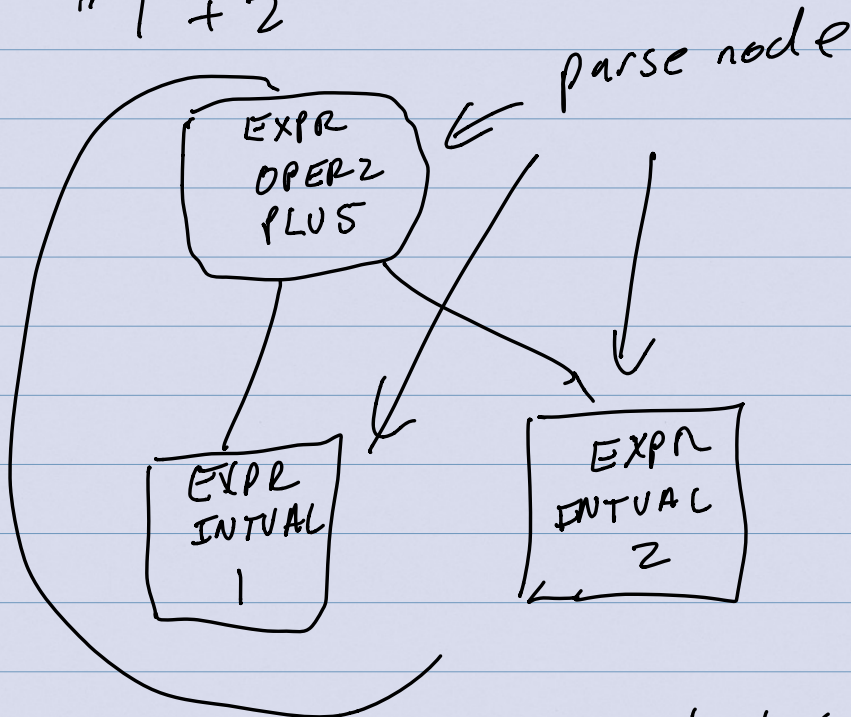 "1 + 2
parse node
EXPR
OPER2
PLUS
EXPR
INTVAL
1
EXPR
INTVAL
2